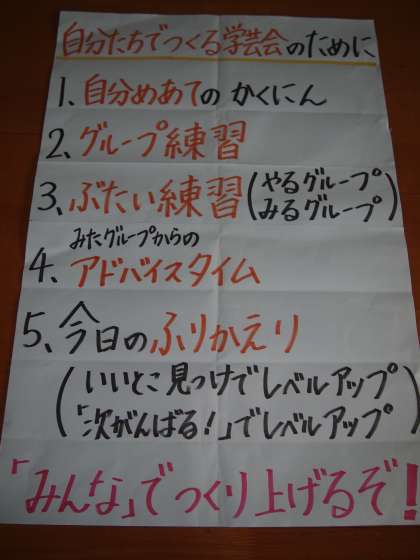 自分たちでつくる学芸会のために
1、自分めあてのかくにん
2、グループ練習
3、ぶたい練習(やるグループ
みるグループ)
みたグループからの
4、アドバイスタイム
5、今日のふりかえり
(いいとこ見つけでレベルアップ
「次がんばる!」でレベルアップ)
「みんな」でつくり上げるぞ!